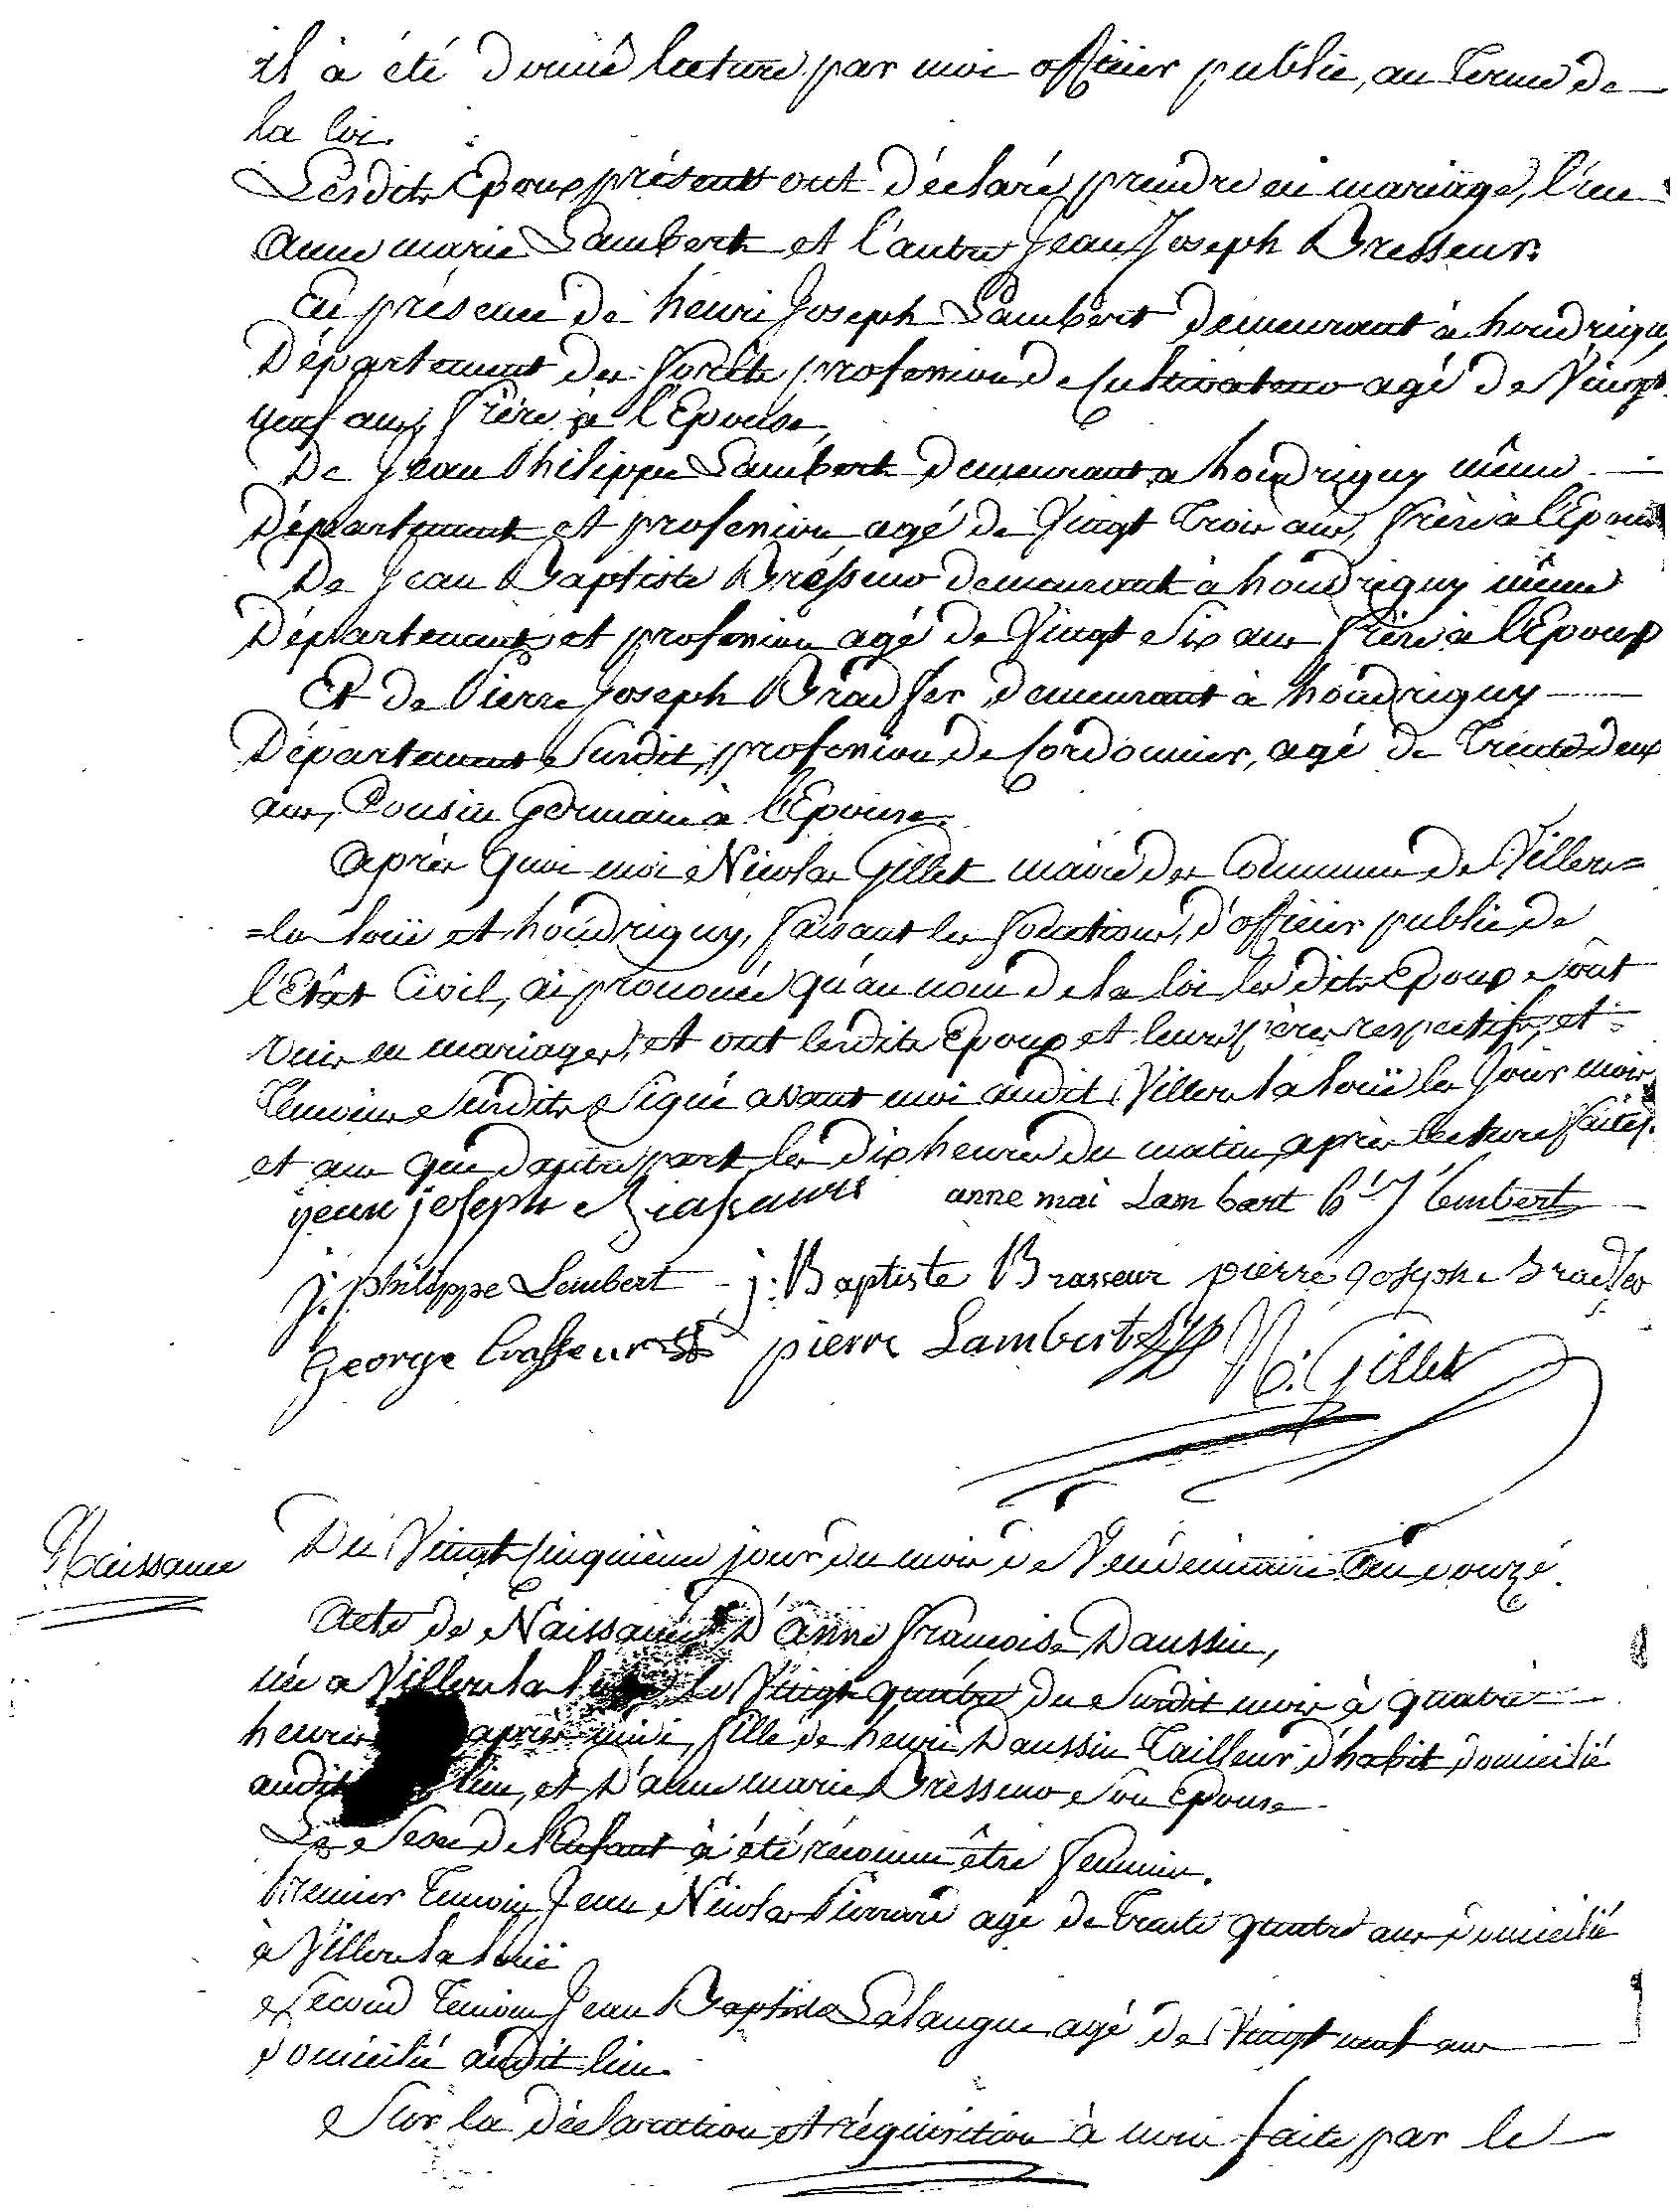 il à été donné lecture par moi officier public, au terme de
la loi.
Lesdits Epoux présents ont déclaré prendre en mariage, l'un
anne marie Lambert et l'autre Jean Joseph Bresseur.
En présence de henri Joseph Lambert demeurant à houdrigny
Département des forêts profession de Cultivateur agé de Vingt
neuf ans, frère à l'Epouse,
De Jean Philippe Lambert demeurant a houdrigny même
Département et profession agé de Vingt Trois ans, frère à l'Epouse
De Jean Baptiste Bresseur demeurant à houdrigny même
Département et profession agé de Vingt Six ans frère à l'Epoux
Et de Pierre Joseph Bradfer demeurant à houdrigny
Département Susdit, profession de Cordonnier, agé de Trente deux
ans, Cousin Germain à l'Epouse.
après quoi moi Nicolas Gillet maire des Communes de Villers=
=la loüe et houdrigny, faisant les fonctions d'officier public de
l'Etat Civil, ai prononcé qu'au nom de la loi les dits Epoux sont
unis en mariage, et ont lesdits Epoux et leurs pères respectifs, et
Témoins Susdits Signé avant moi audit Villers la loüe les Jour mois
et an que d'autre part les dix heures du matin, après lecture faite.
jean joseph anne mai Lambart h J lambert
j. philippe Lambert j. Baptiste Brasseur pierre Joseph Bradfer
George brasseur pierre Lambert N. Gillet
Naissance
Du Vingt Cinquième jour du mois de Vendemiaire an douze.
Acte de Naissance D'anne françoise Daussin,
née a Villers la le Vingt quatre du Susdit mois à quatre
heures après midi, fille de henri Daussin Tailleur d'habit domicilié
audit lieu, et D'anne marie Bresseur Son Epouse.
Le Sexe de l'Enfant à été reconnu être feminin.
Premier Temoin Jean Nicolas Pierrard agé de Trente quatre ans domicilié
à Villers la loüe
Second Temoin Jean Baptiste agé de Vingt neuf ans
domicilié audit lieu.
Sur la déclaration et réquisition à moi faite par le